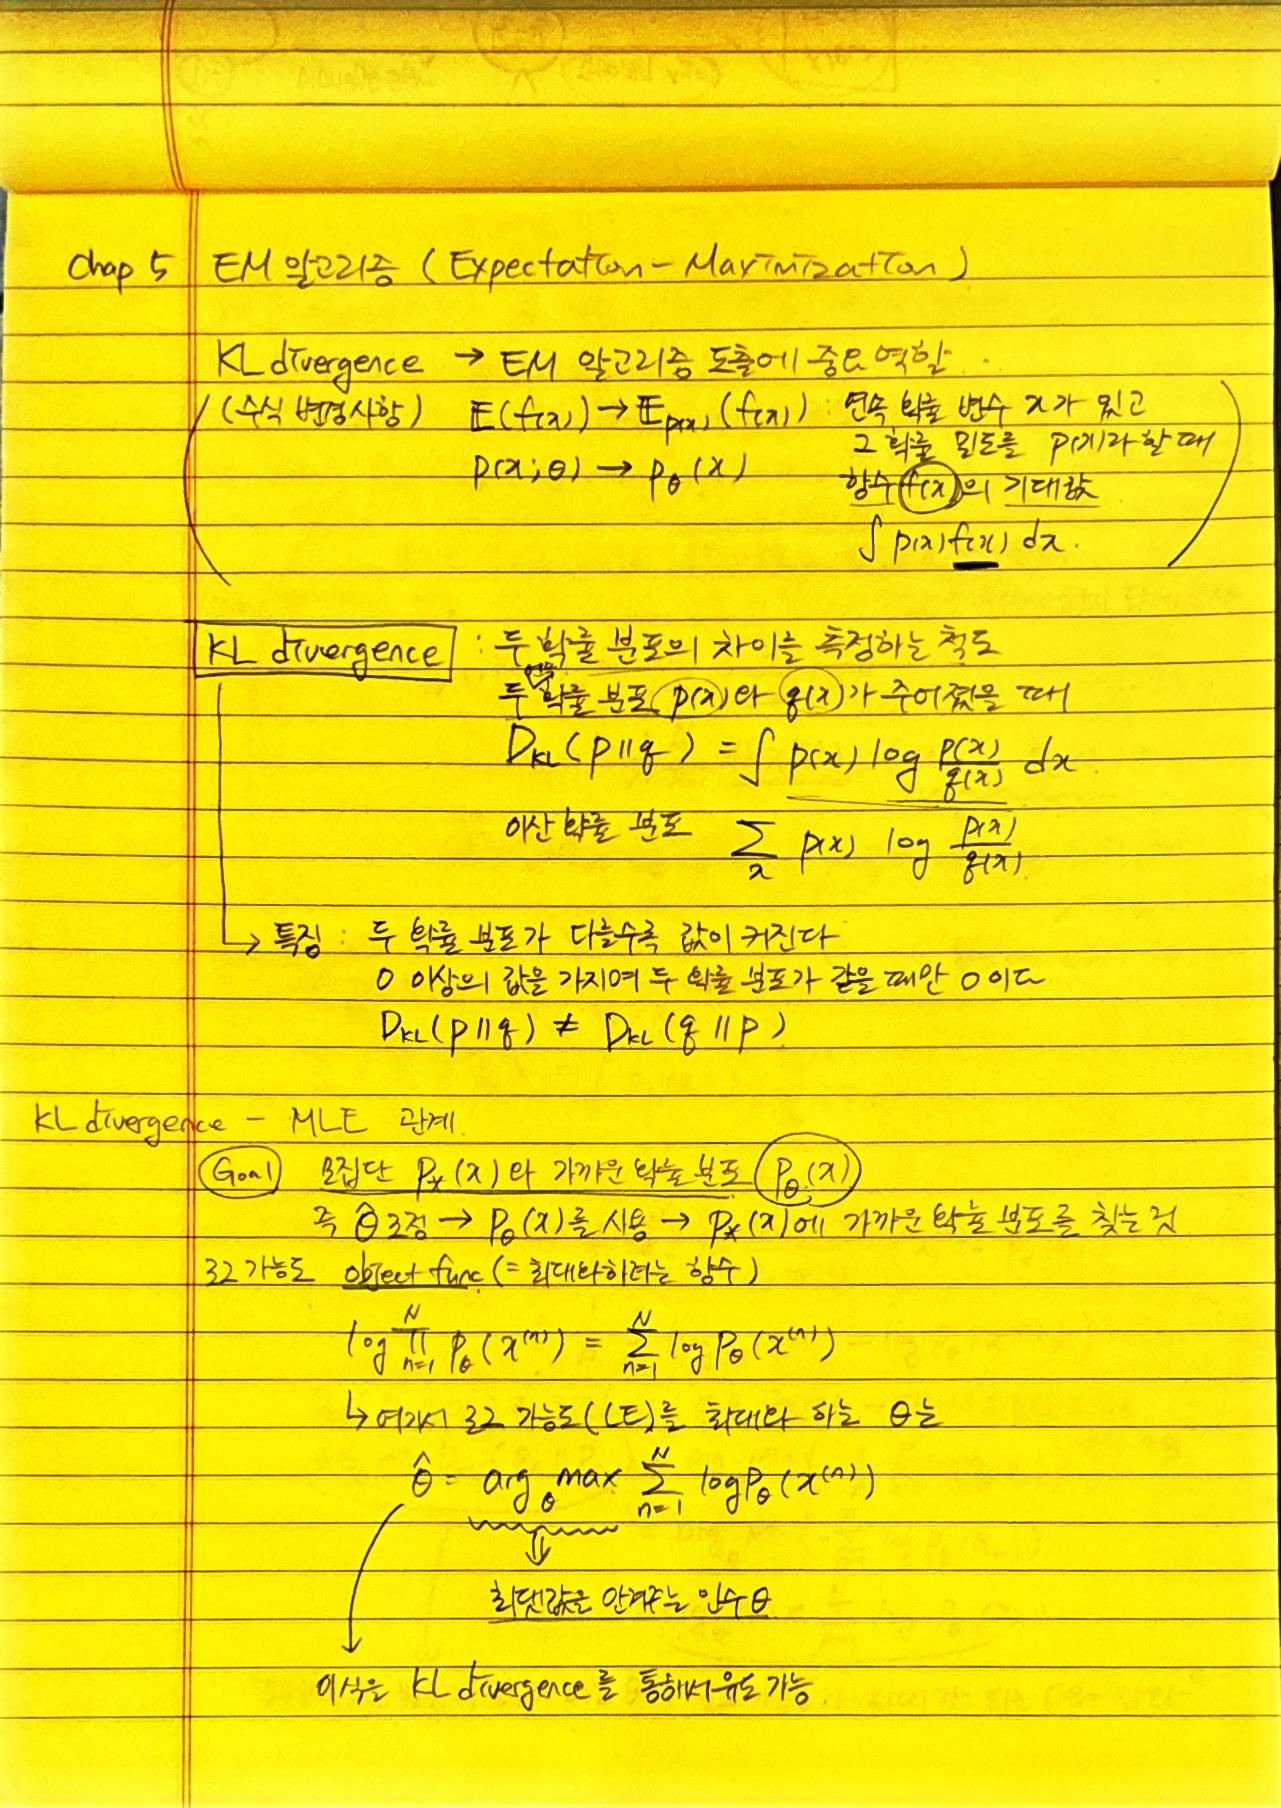 Chap 5 EM 알고리즘 (Expectation - Maximization)
KL divergence → EM 알고리즘 도출에 중요 역할.
(수식 변경사항) E(f(x)) → E_{p(x)}(f(x)) : 연속 확률 변수 x가 있고
그 확률 밀도를 p(x)라 할 때
p(x;θ) → p_θ(x)
함수 f(x)의 기대값
∫ p(x)f(x) dx.
KL divergence : 두 확률 분포의 차이를 측정하는 척도
두 연속 확률 분포 p(x)와 q(x)가 주어졌을 때
D_KL(p∥q) = ∫ p(x) log p(x)/q(x) dx
이산 확률 분포 Σ_x p(x) log p(x)/q(x)
→ 특징 : 두 확률 분포가 다를수록 값이 커진다
0 이상의 값을 가지며 두 확률 분포가 같을 때만 0이다
D_KL(p∥q) ≠ D_KL(q∥p)
KL divergence - MLE 관계
Goal 모집단 p_*(x)와 가까운 확률 분포 p_θ(x)
즉 θ̂ 조정 → p_θ(x)를 사용 → p_*(x)에 가까운 확률 분포를 찾는 것
로그 가능도 object func (= 최대화하려는 함수)
log ∏_{n=1}^N p_θ(x^(n)) = Σ_{n=1}^N log p_θ(x^(n))
↳ 여기서 로그 가능도(LE)를 최대화 하는 θ는
θ̂ = arg_θ max Σ_{n=1}^N log p_θ(x^(n))
최댓값을 안겨주는 인수 θ
이 식은 KL divergence를 통해서 유도 가능